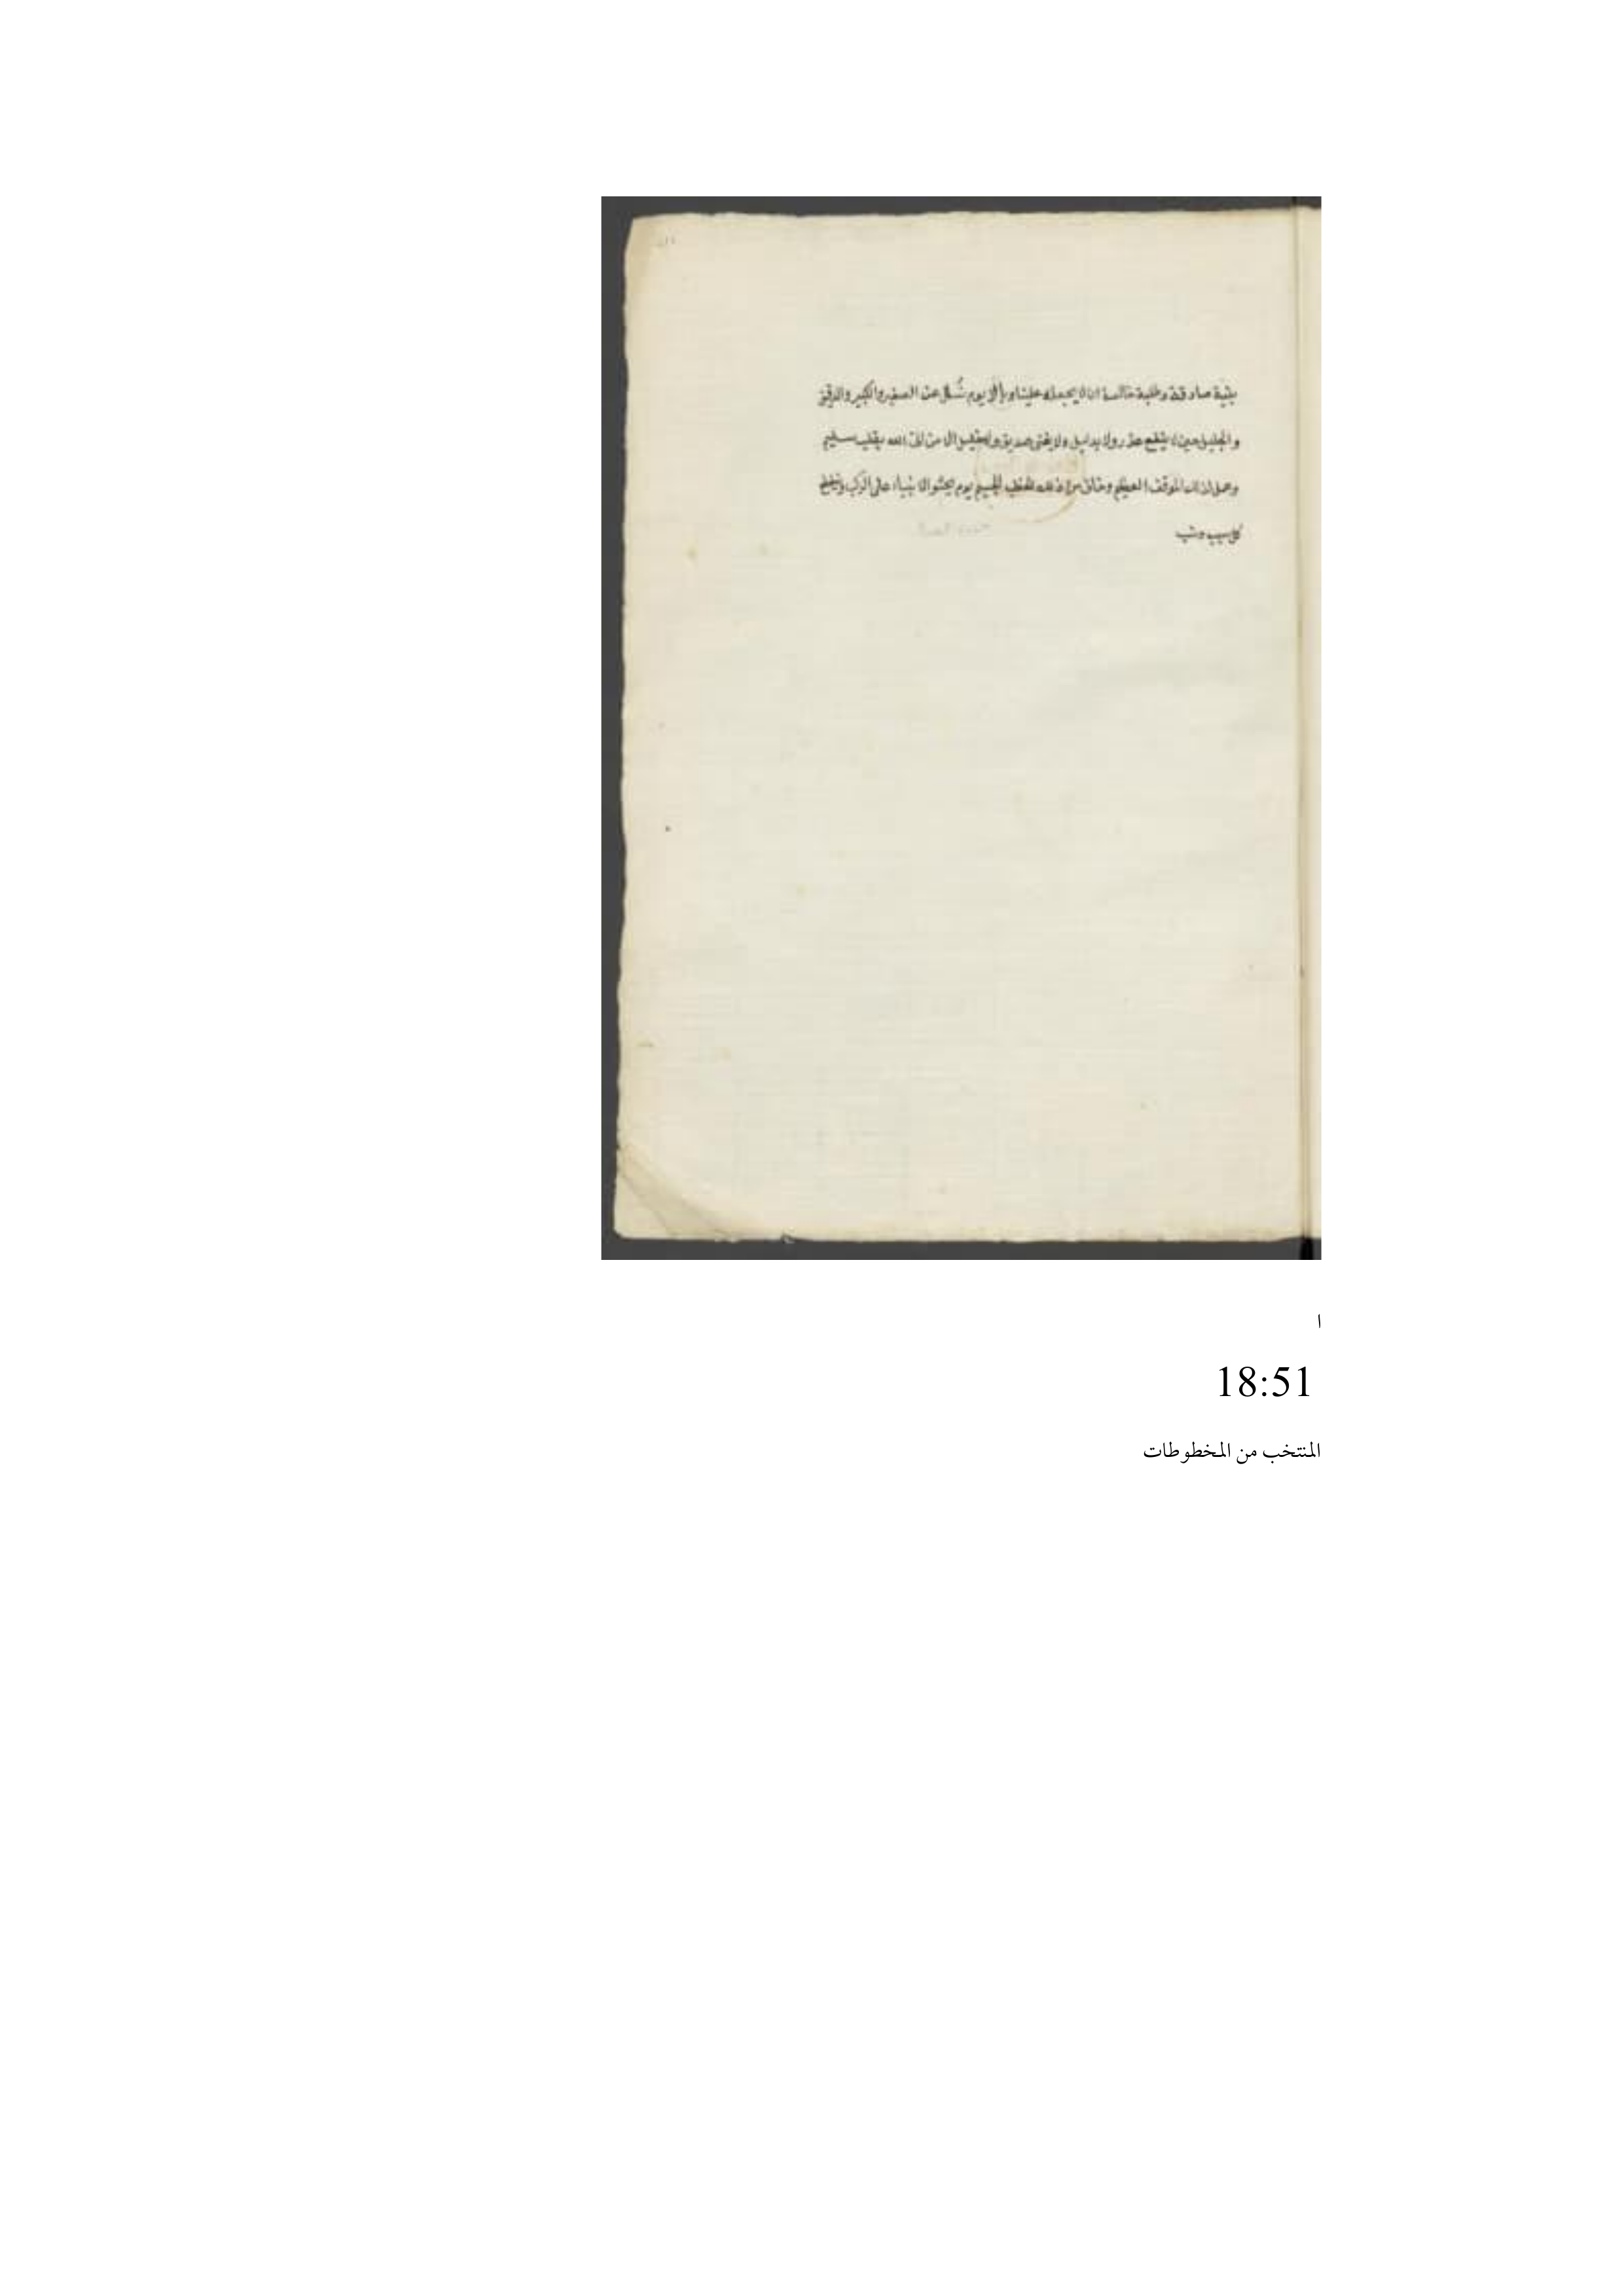 بنية صادقة وطلبة خالصة ان لا يجعله علينا وبالا يوم نُسال عن الصغير والكبير والدقيق
والجليل حين لا ينفع عذر ولا بدليل ولا يغنى صديق ولا الا من اتى الله بقلب سليم
وعمل لذلك الموقف العظيم وخاف من ذلك الخطب الجسيم يوم يجثو الانبياء على الركب
كل سبب ونسب
ا
18:51
المنتخب من المخطوطات